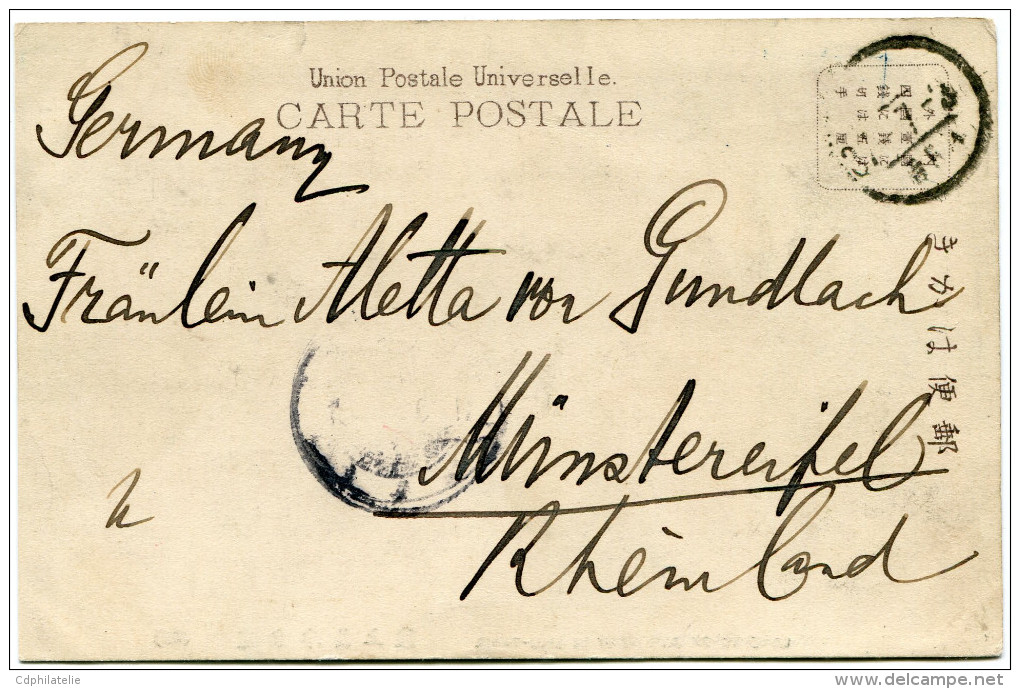 Union Postale Universelle.
CARTE POSTALE
Germany
Fräulein Aletta von Gundlach
Münstereifel
Rheinland
きかは便郵
Cdphilatelie
delcampe.net